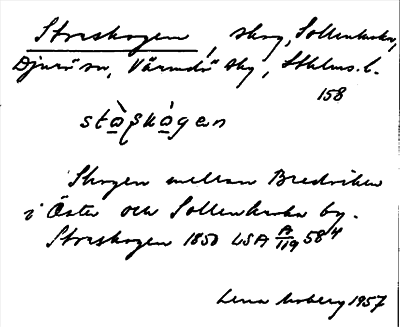 Storskogen, skog, Sollenkroka,
Djurö sn, Värmdö skg, Sthlms l.
158
stɷ̀ʂkɷ̀gɛn
Skogen mellan Bredviken
i Öster och Sollenkroka by.
Storskogen 1850 LSA A/119 58⁴
Lena Moberg 1957